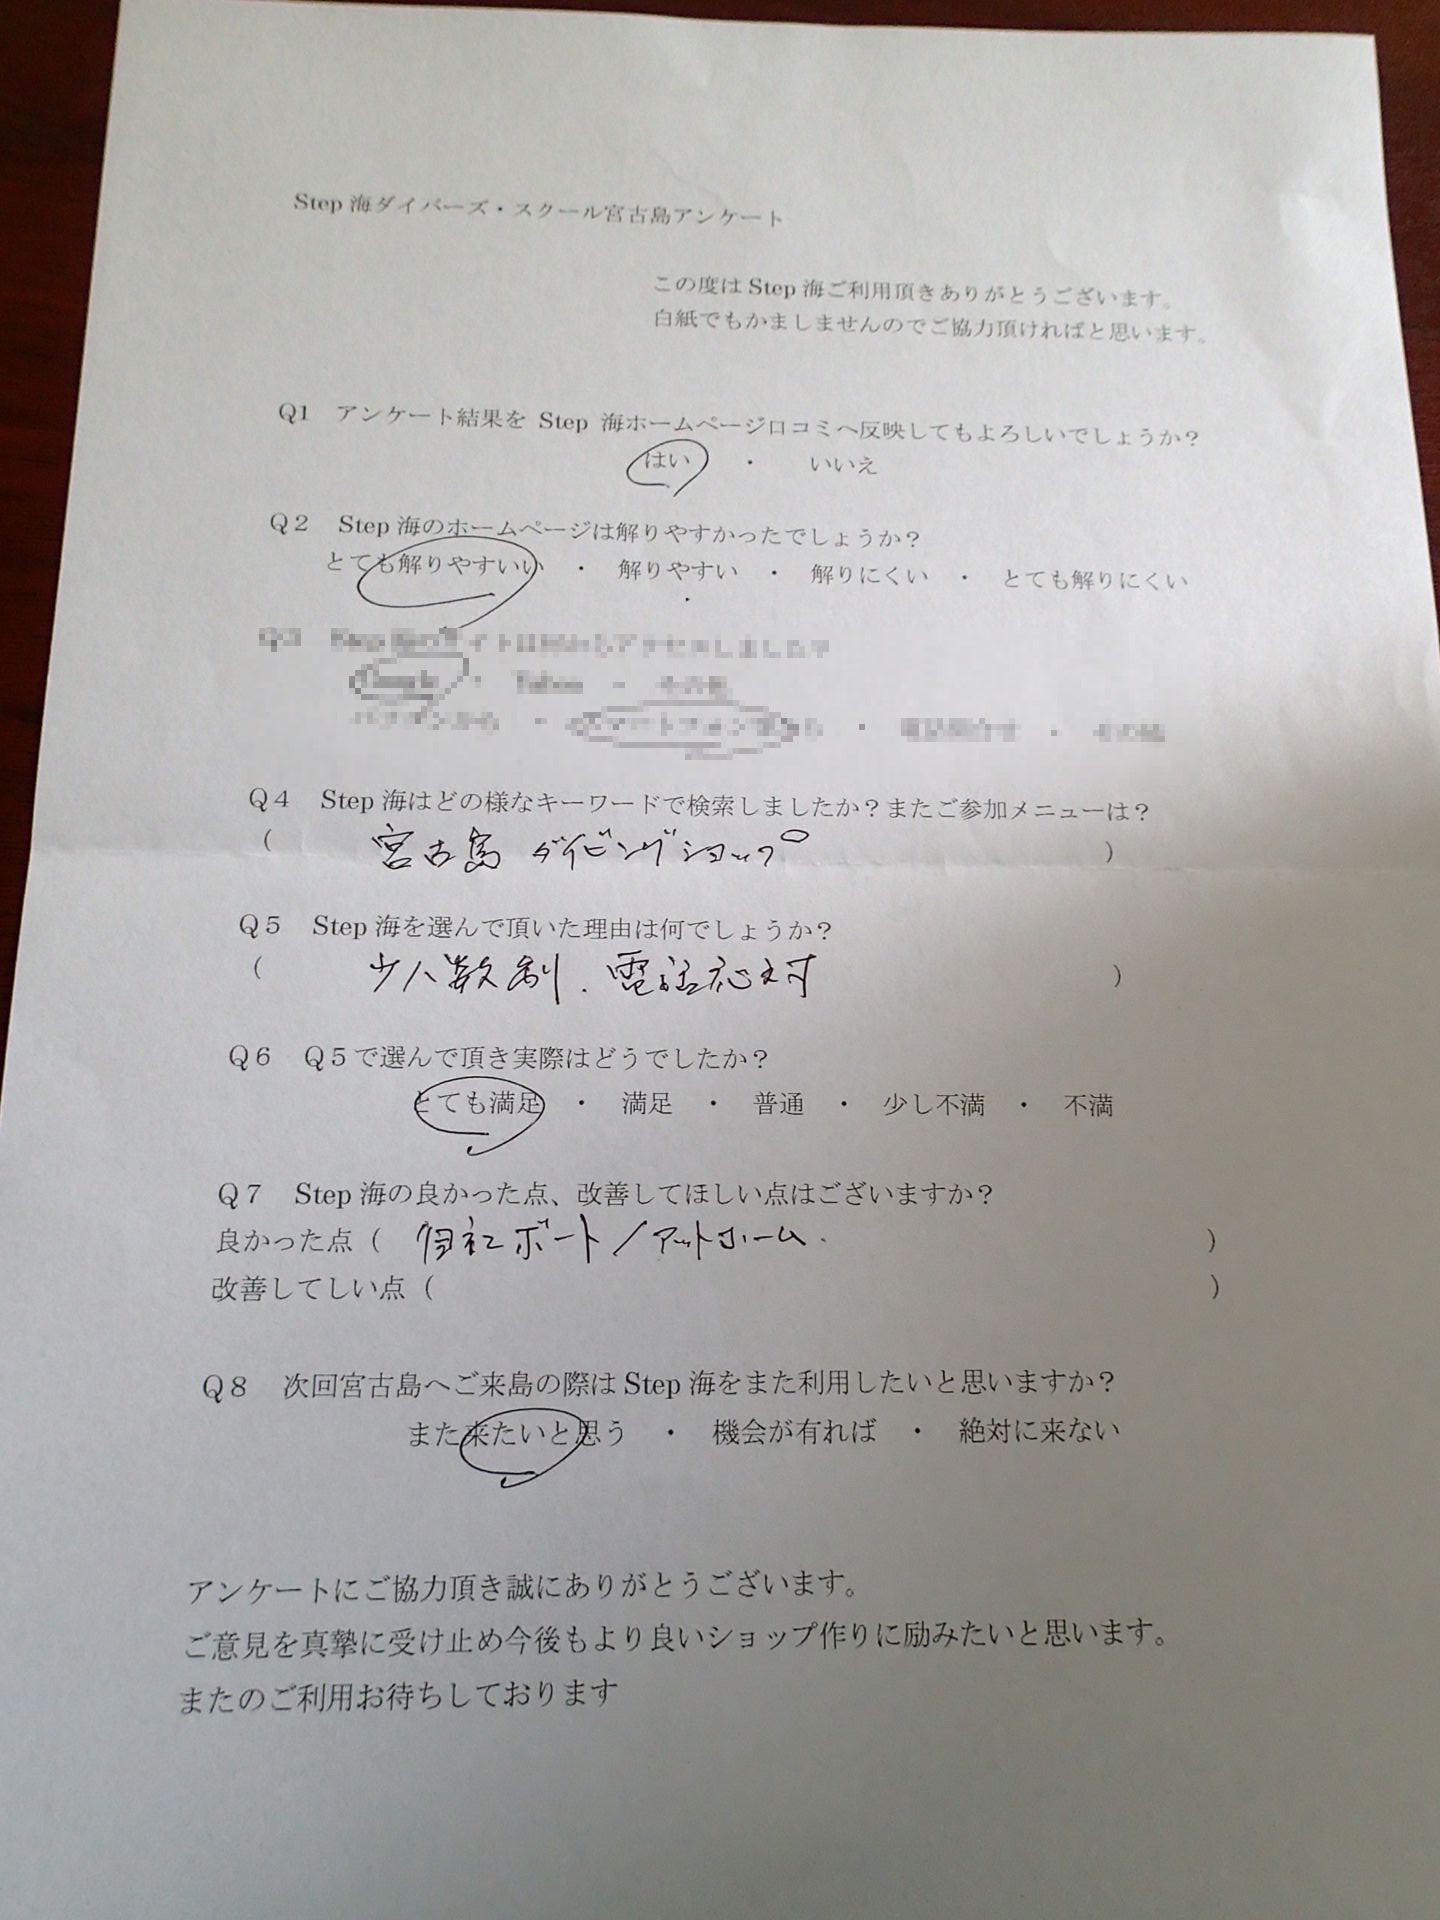 Step 海ダイバーズ・スクール宮古島アンケート
この度は Step 海ご利用頂きありがとうございます。
白紙でもかましませんのでご協力頂ければと思います。
Q1 アンケート結果を Step 海ホームページ口コミへ反映してもよろしいでしょうか？
はい ・ いいえ
Q２ Step 海のホームページは解りやすかったでしょうか？
とても解りやすいい ・ 解りやすい ・ 解りにくい ・ とても解りにくい
Q４ Step 海はどの様なキーワードで検索しましたか？またご参加メニューは？
（ 宮古島 ダイビングショップ ）
Q５ Step 海を選んで頂いた理由は何でしょうか？
（ 少人数制．電話応対 ）
Q６ Q５で選んで頂き実際はどうでしたか？
とても満足 ・ 満足 ・ 普通 ・ 少し不満 ・ 不満
Q７ Step 海の良かった点、改善してほしい点はございますか？
良かった点（ 自社ボート／アットホーム. ）
改善してしい点（ ）
Q８ 次回宮古島へご来島の際は Step 海をまた利用したいと思いますか？
また来たいと思う ・ 機会が有れば ・ 絶対に来ない
アンケートにご協力頂き誠にありがとうございます。
ご意見を真摯に受け止め今後もより良いショップ作りに励みたいと思います。
またのご利用お待ちしております